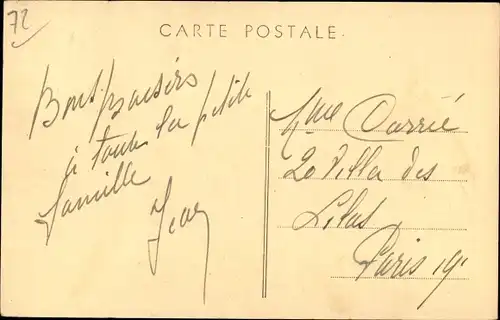 72
CARTE POSTALE
Bons baisers
à toute la petite
famille
Jean
Mme Carrié
20 Villa des
Lilas
Paris 19e